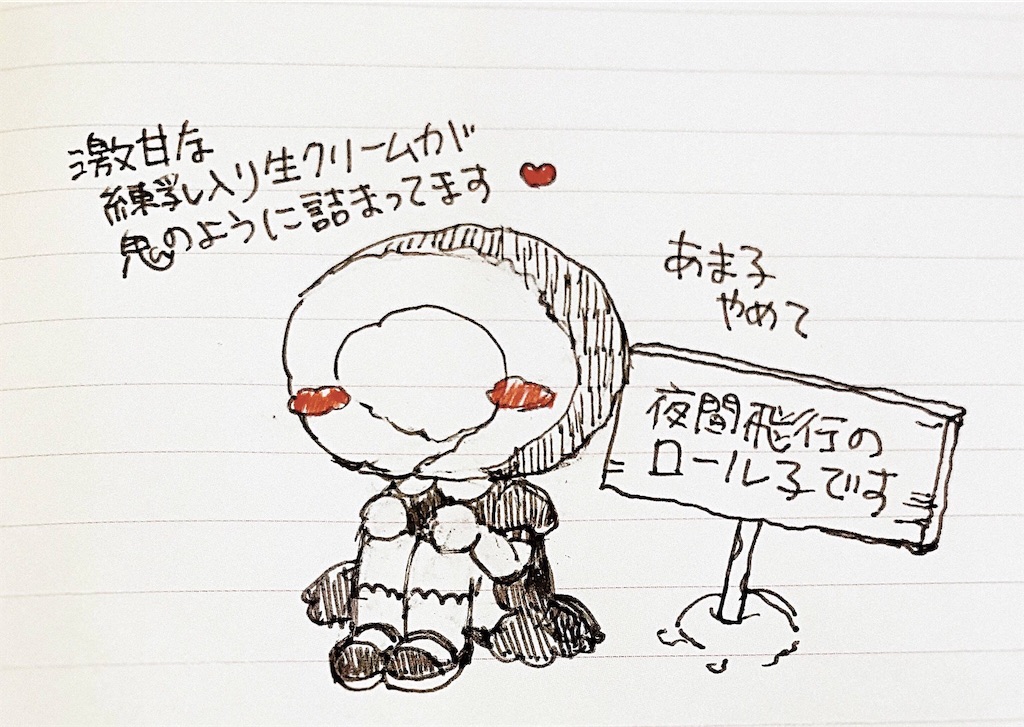 激甘な
練乳入り生クリームが
鬼のように詰まってます
あま子
やめて
夜間飛行の
ロール子です